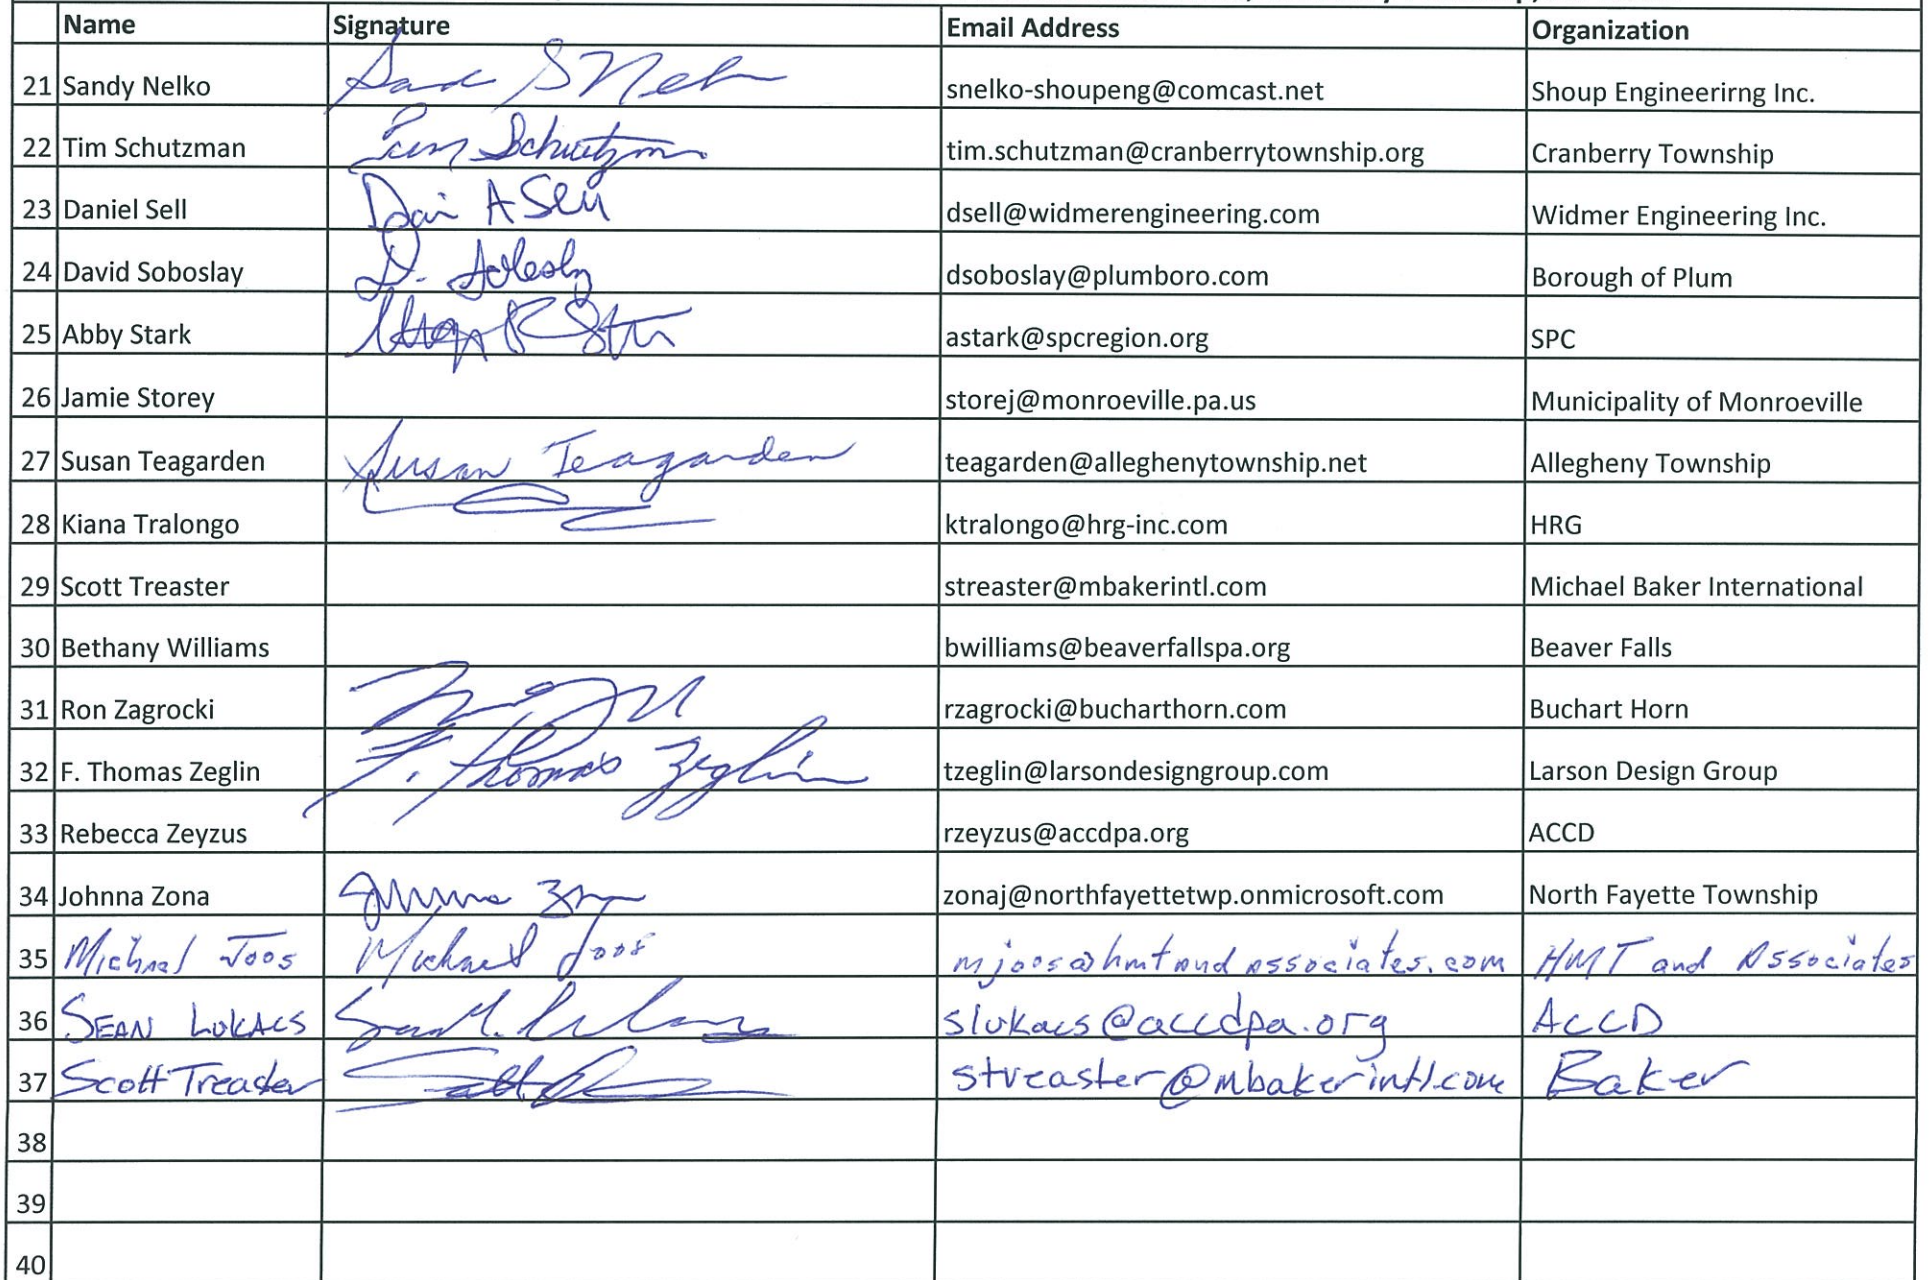 Name Signature Email Address Organization
21 Sandy Nelko snelko-shoupeng@comcast.net Shoup Engineerirng Inc.
22 Tim Schutzman Tim Schutzman tim.schutzman@cranberrytownship.org Cranberry Township
23 Daniel Sell dsell@widmerengineering.com Widmer Engineering Inc.
24 David Soboslay dsoboslay@plumboro.com Borough of Plum
25 Abby Stark astark@spcregion.org SPC
26 Jamie Storey storej@monroeville.pa.us Municipality of Monroeville
27 Susan Teagarden Susan Teagarden teagarden@alleghenytownship.net Allegheny Township
28 Kiana Tralongo ktralongo@hrg-inc.com HRG
29 Scott Treaster streaster@mbakerintl.com Michael Baker International
30 Bethany Williams bwilliams@beaverfallspa.org Beaver Falls
31 Ron Zagrocki rzagrocki@bucharthorn.com Buchart Horn
32 F. Thomas Zeglin F. Thomas Zeglin tzeglin@larsondesigngroup.com Larson Design Group
33 Rebecca Zeyzus rzeyzus@accdpa.org ACCD
34 Johnna Zona zonaj@northfayettetwp.onmicrosoft.com North Fayette Township
35 Michael Joos Michael Joos mjoos@hmtandassociates.com HMT and Associates
36 SEAN LUKACS slukacs@accdpa.org ACCD
37 Scott Treaster streaster@mbakerintl.com Baker
38
39
40